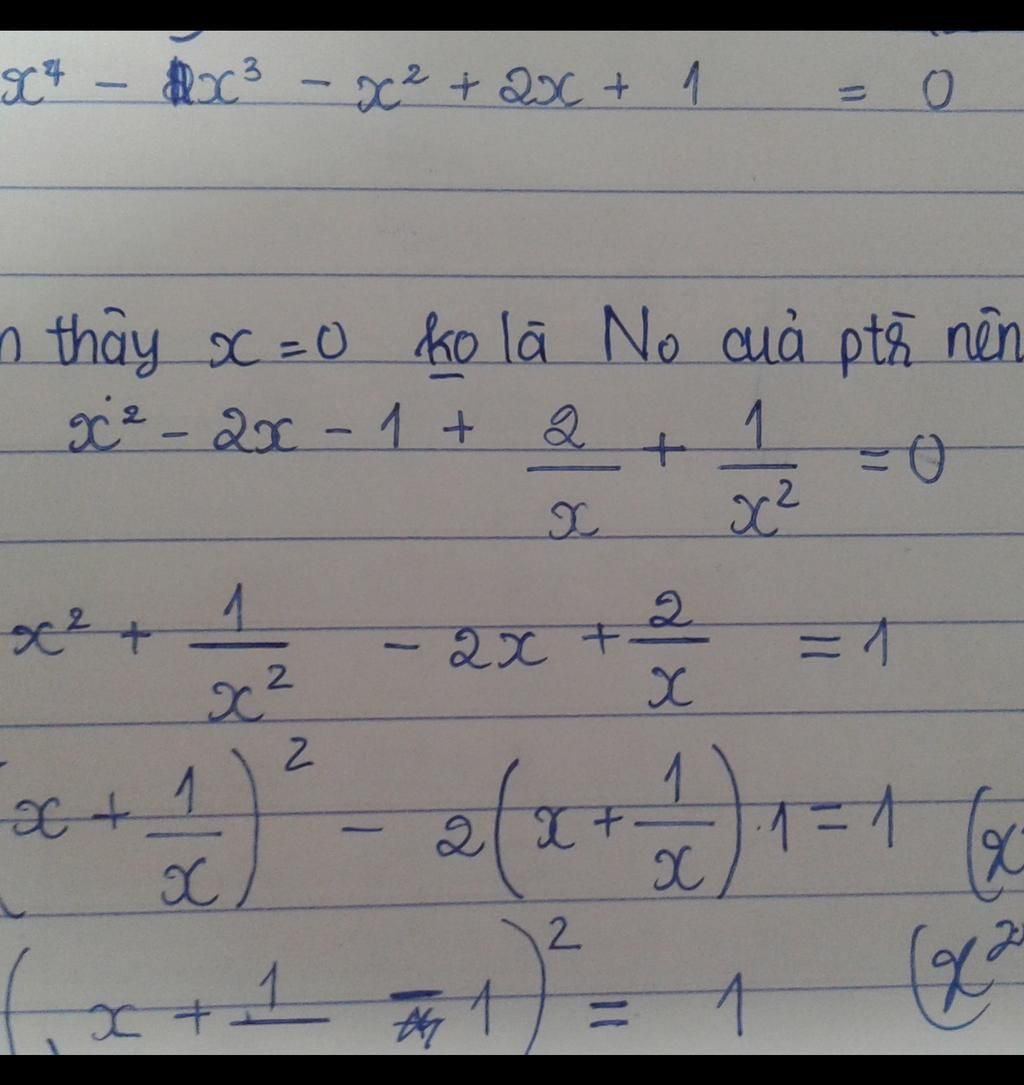 x⁴ - 2x³ - x² + 2x + 1 = 0
thấy x = 0 ko là No của ptr̄ nên
x² - 2x - 1 + 2/x + 1/x² = 0
x² + 1/x² - 2x + 2/x = 1
x + 1/x)² - 2(x + 1/x).1 = 1 (x
(x + 1 - 1)² = 1 (x²